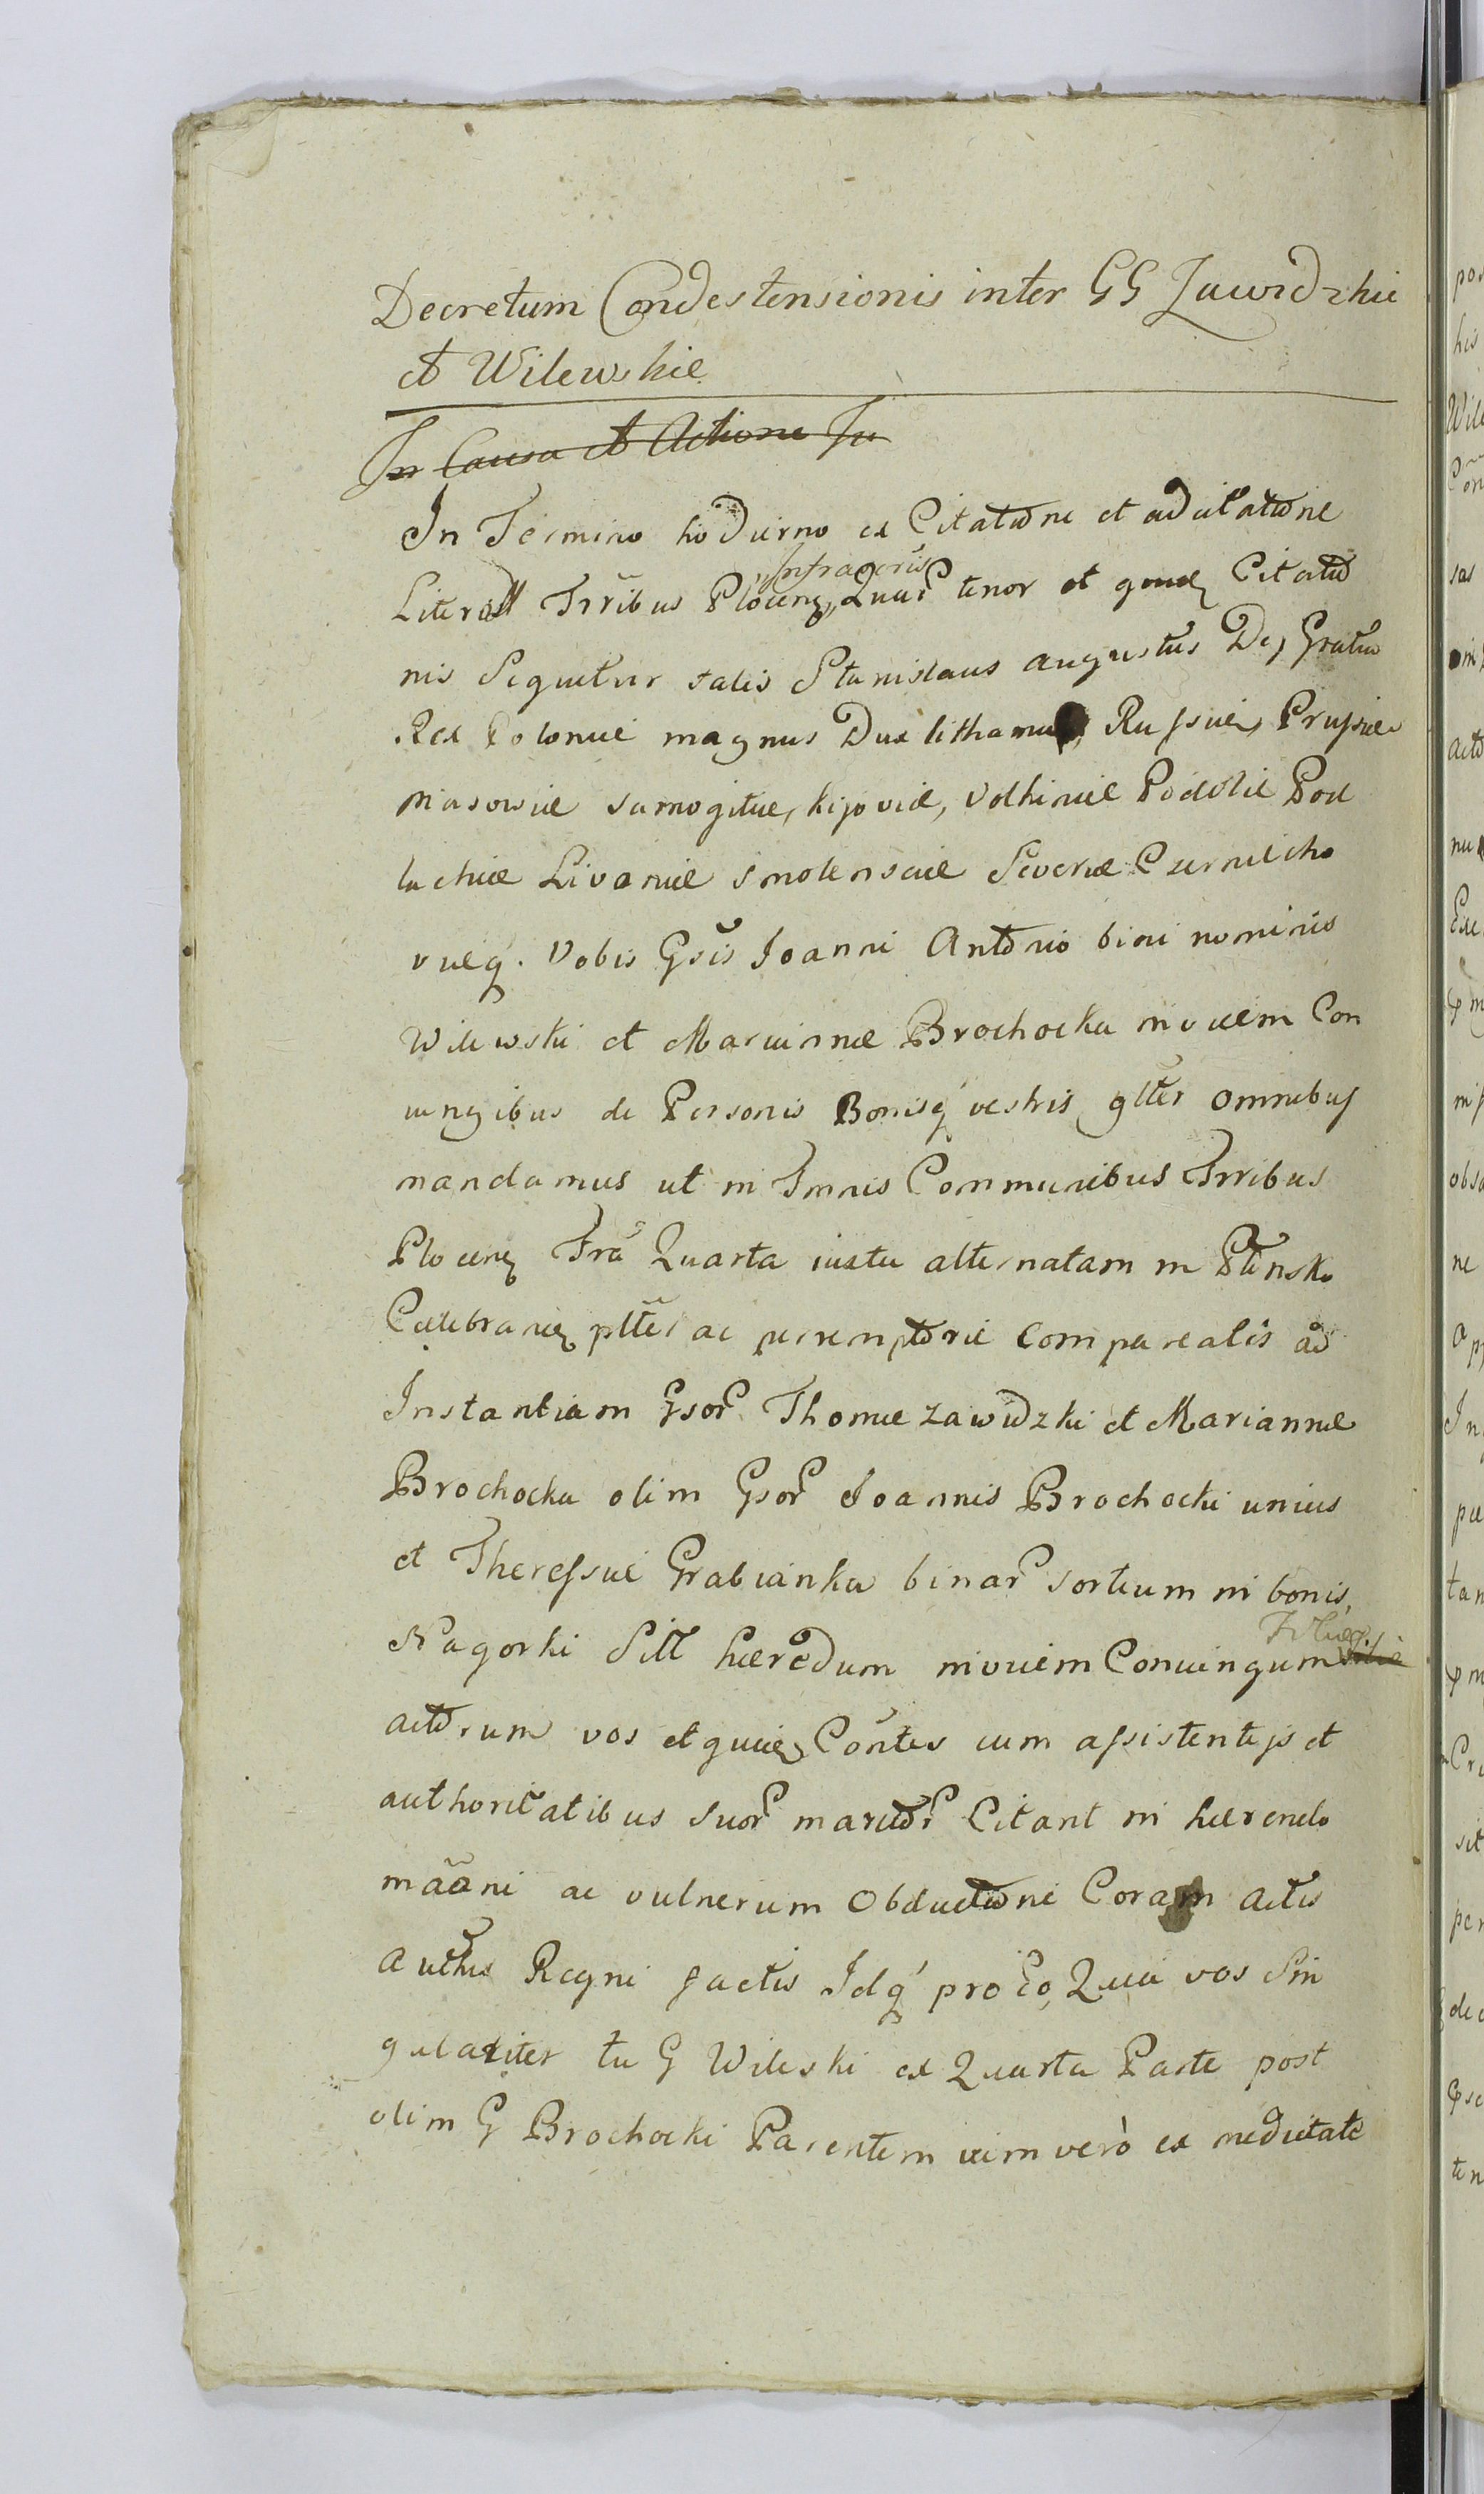 Decretum Condestensionis inter GG Zawidzkie
et Wilewskie
In Causa et Actione In
In Termino hodierno ex Citatione et adcitatione
Infrascriis
Literall Trribus Plocenz, Quar tenor et Citatio
nis Sequitur talis Stanislaus augustus Dej Gratia
Rex Poloniæ magnus Dux lithaniae, Russiæ, Prussiæ
Masowiæ samogitiæ, kijoviæ, Volhiniæ Podoliæ Pod
lachiæ Livoniæ smolensciæ Severiæ Czerniecho
viæq. Vobis Gsis Joanni Antonio bini nominis
Wilewski et Mariannæ Brochocka invicem Con
iungibus de Personis Bonisq vestris gltter omnibus
mandamus ut in Tmnis Communibus Trribus
Plocenz Fra Quarta iuxta alternatam in Płonsko
Celebranz pltter ac peremptorie compareatis ad
Instantiam Gsor Thomæ Zawidzki et Mariannæ
Brochocka olim Gsor Joannis Brochocki unius
et Theressiæ Grabianka binar sortium in bonis
Nagorki Sitt hæredum invicem Coniungum
Filiæ
actorum vos et Contes cum assistentijs et
authoritatibus suor maritor Citant in hærendo
maani ac vulnerum Obductioni Coram actis
authis Regni factis Idq pro eo, Quia vos Sin
gulariter tu G Wileski ex Quarta Parte post
olim G Brochocki Parentem vim verò ex medietate